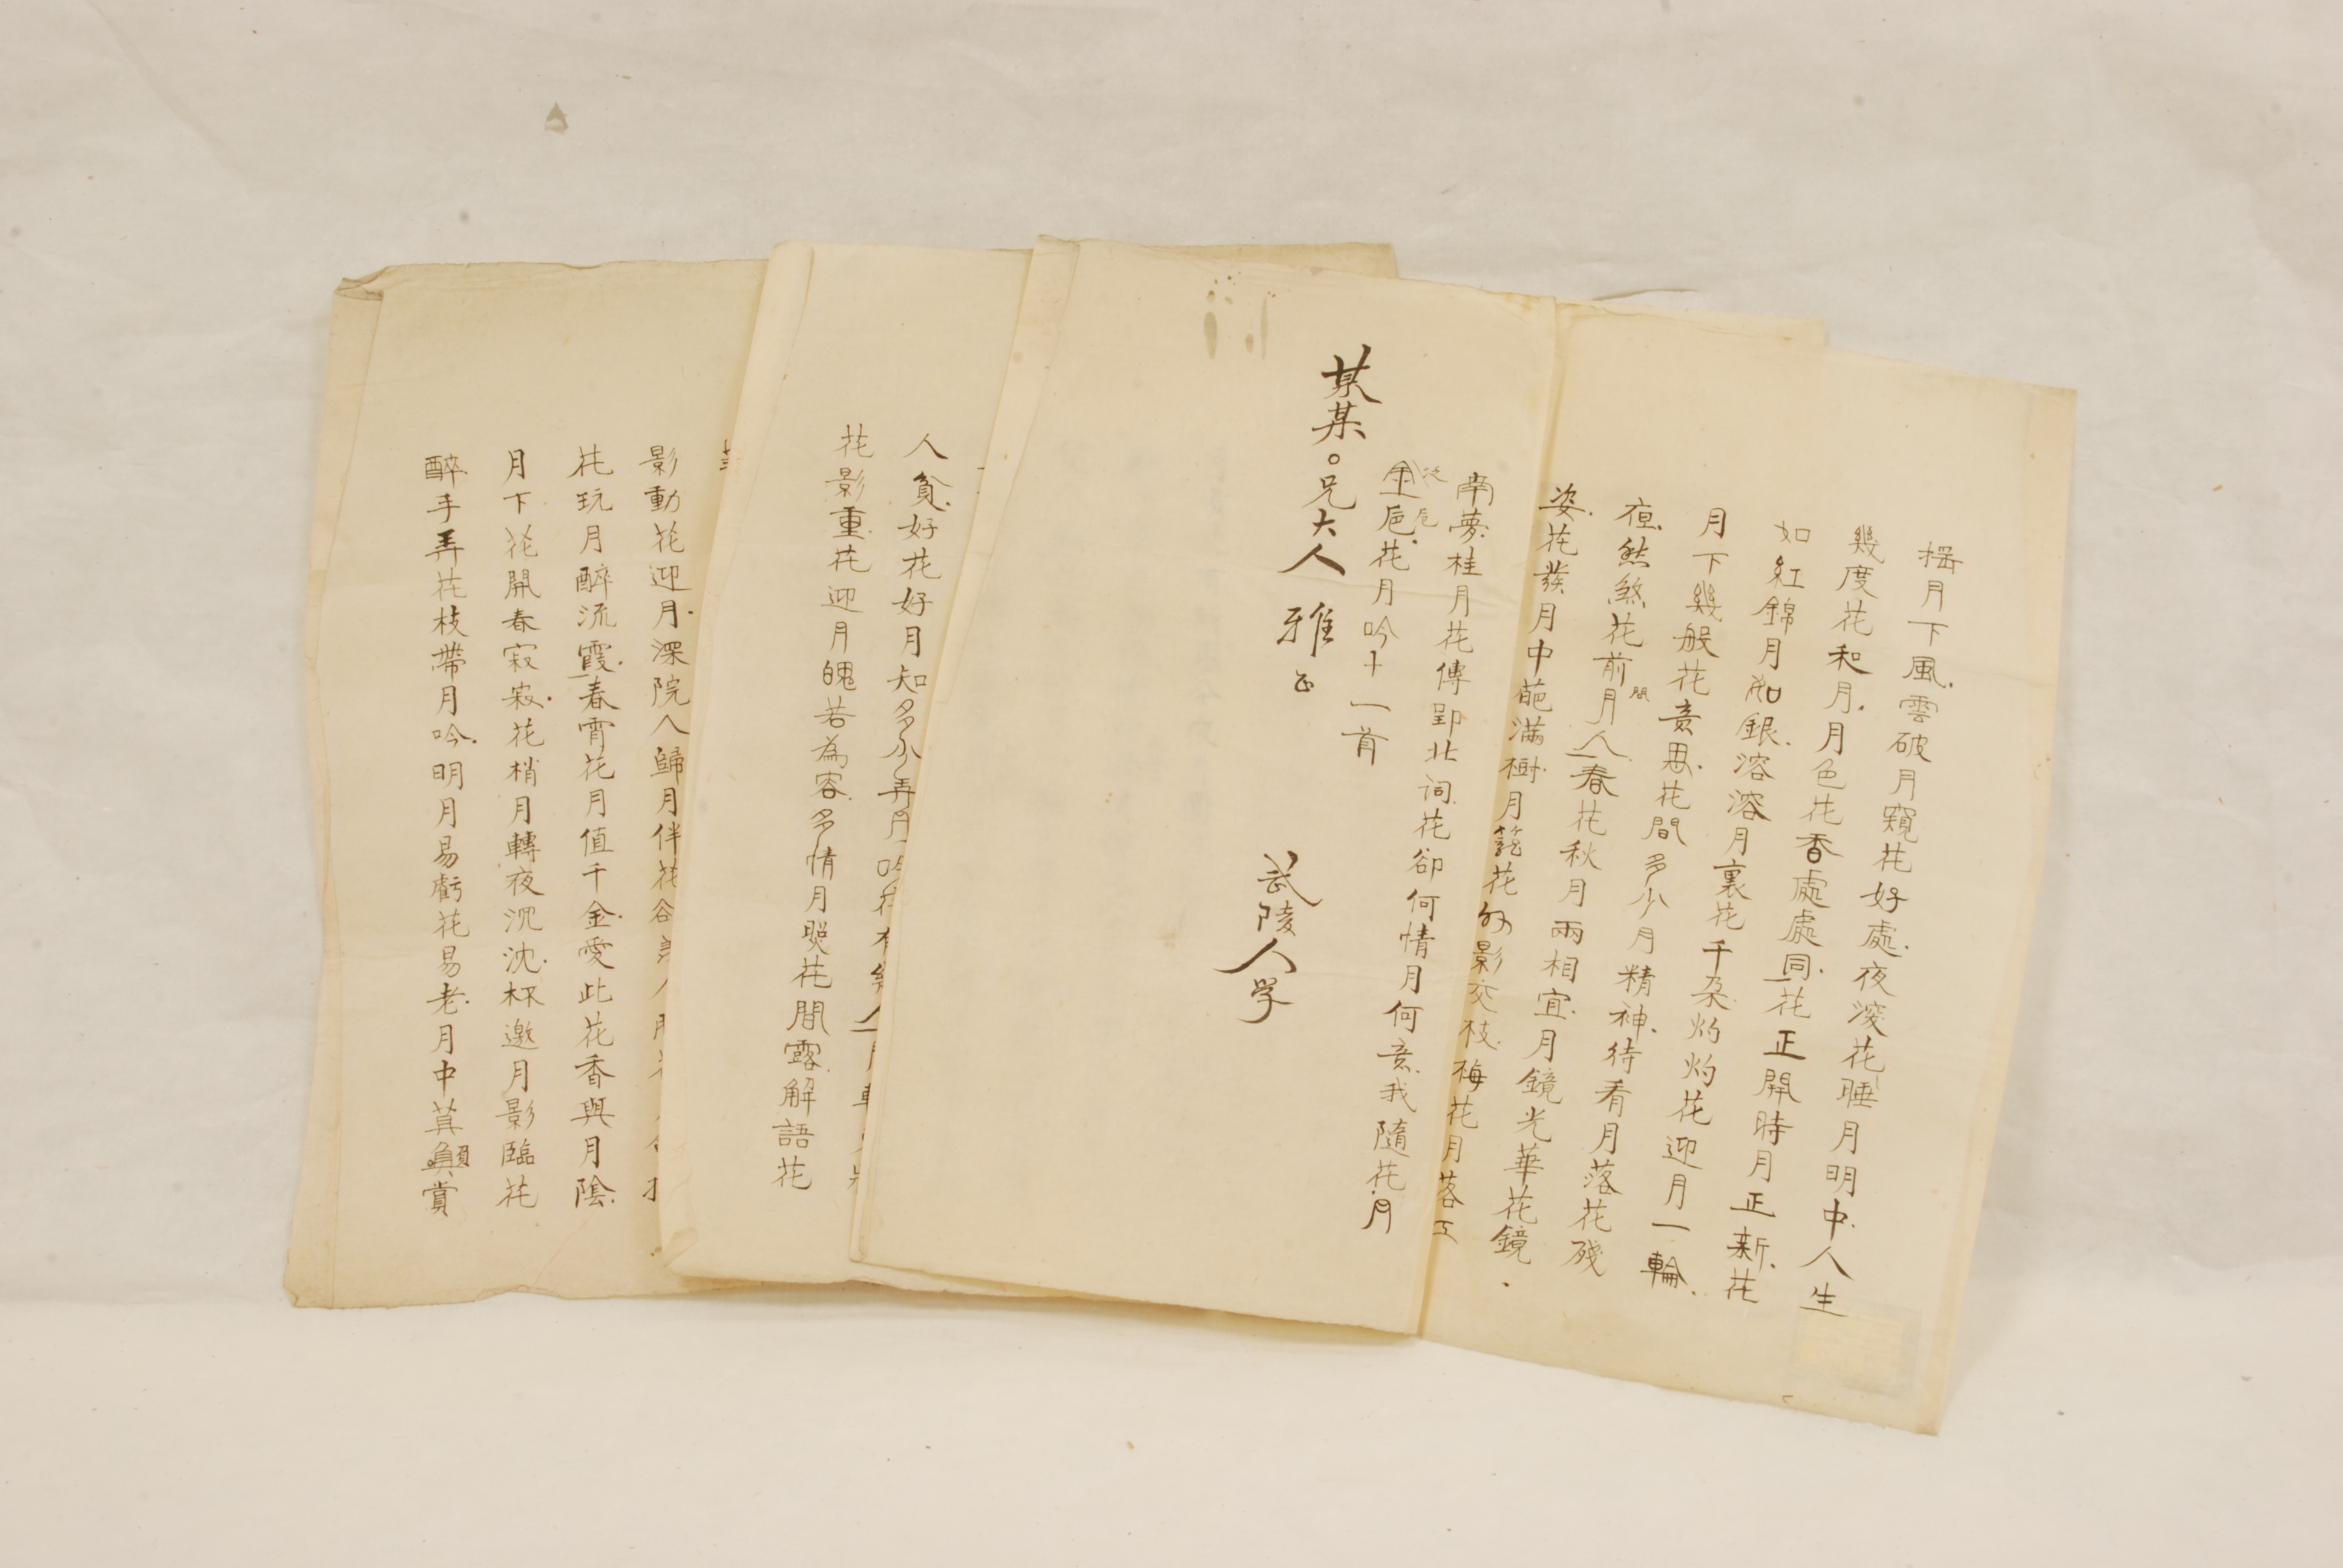 搖月下風雲破月窺花好處夜深花睡月明中人生
幾度花和月月色花香處處同花正開時月正新花
如紅錦月如銀溶溶月裏花千朶灼灼花迎月一輪
月下幾般花意思花間多少月精神待看月落花殘
夜煞煞花前月間人春花秋月兩相宜月鏡光華花鏡
姿花發月中葩滿樹月籠花外影交枝梅花月落江
南夢桂月花傳郢北詞花卻何情月何意我隨花月
泛金巵花月吟十一首
某某兄大人雅正
武陵人学
人貧好花好月知多少弄月吟花有幾人
花影重花迎月魄若為容多情月照花間露解語花
影動花迎月深院人歸月伴花
花玩月醉流霞春宵花月值千金愛此花香與月陰
月下花開春寂寂花梢月轉夜沉沈杯邀月影臨花
醉手弄花枝帶月吟明月易虧花易老月中莫負賞